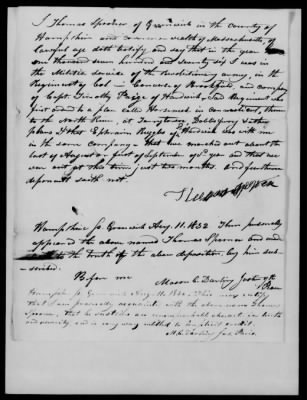 I Thomas Spooner of Greenwich in the county of
Hampshire and commonwealth of Massachusetts, of
lawful age doth testify and say that in the year
one thousand seven hundred and seventy six I was in
the Militia service of the Revolutionary army, in the
Regiment of Col — Converse of Brookfield, and company
of Capt. Timothy Paige of Hardwick, Said Regiment
first and to a place calld Horseneck
the North River, at Tarrytown, Dobbsferry & other
places I that Ephraim Ruggles of Hardwick was with me
in the same company — that we marched out about the
last of August or first of September of sd year and that we
was out at this time just two months. And further
deponent saith not.
Thomas Spooner
Hampshire Ss Greenwich Aug. 11. 1832 Then personally
appeared the above named Thomas Spooner and made
to the truth of the above deposition by him sub-
scribed.
Before me
Mason C. Darling Just. of the
Peace
Hampshire Ss Greenwich Aug 11. 1832 This may certify
that I am personally acquainted with the above named Thomas
Spooner, that he sustains an unimpeachable character for truth
and veracity and is very way entitled to implicit credit.
M. C. Darling Jus. Peace